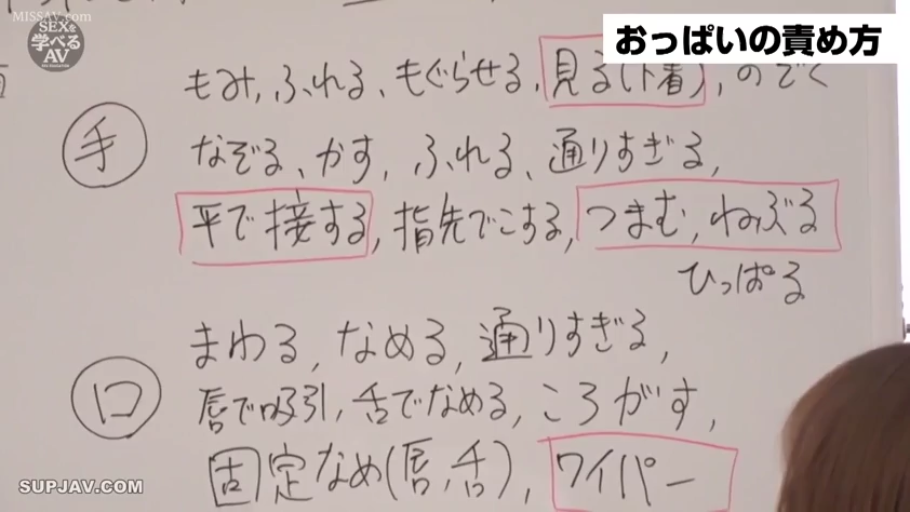 MISSAV.com
SEXを
学べる
AV
おっぱいの責め方
もみ,ふれる、もぐらせる,見る(下着),のぞく
手
なぞる、かす,ふれる、通りすぎる,
平で接する,指先でこする,つまむ,ねぶる
ひっぱる
まわる,なめる,通りすぎる,
口
唇で吸引,舌でなめる,ころがす,
固定なめ(唇,舌),ワイパー
SUPJAV.COM